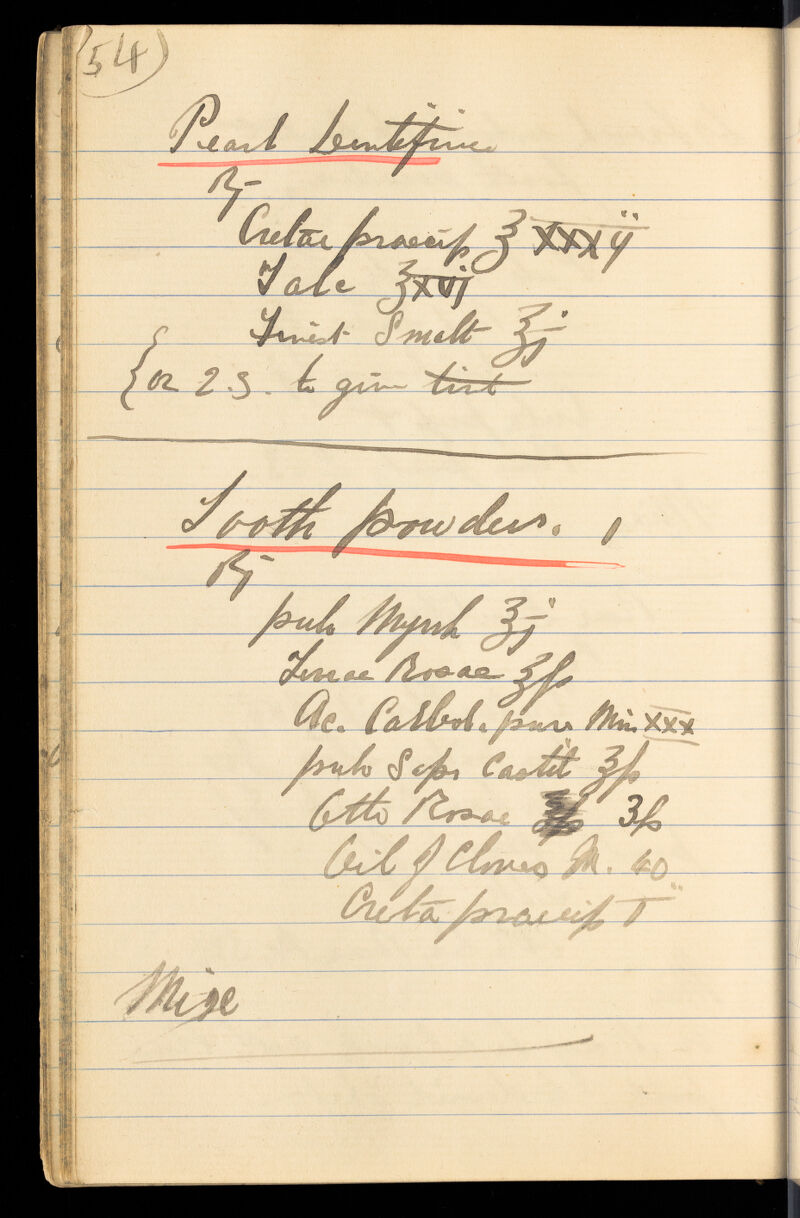 (54)
Pearl Dentifrice
℞
Cretae praecip ℥ xxxij
Talc ℥ xvj
Finest Smalt ℥j
{or 2.S. to give tint
Tooth powders. 1
℞
pulv Myrrh ℥j
Terrae Rosae ℥ß
Ac. Carbol. pure Min xxx
pulv Sapo Castil ℥ß
Otto Rosae ʒß
Oil of Cloves M. 40
Creta praecip
Mix